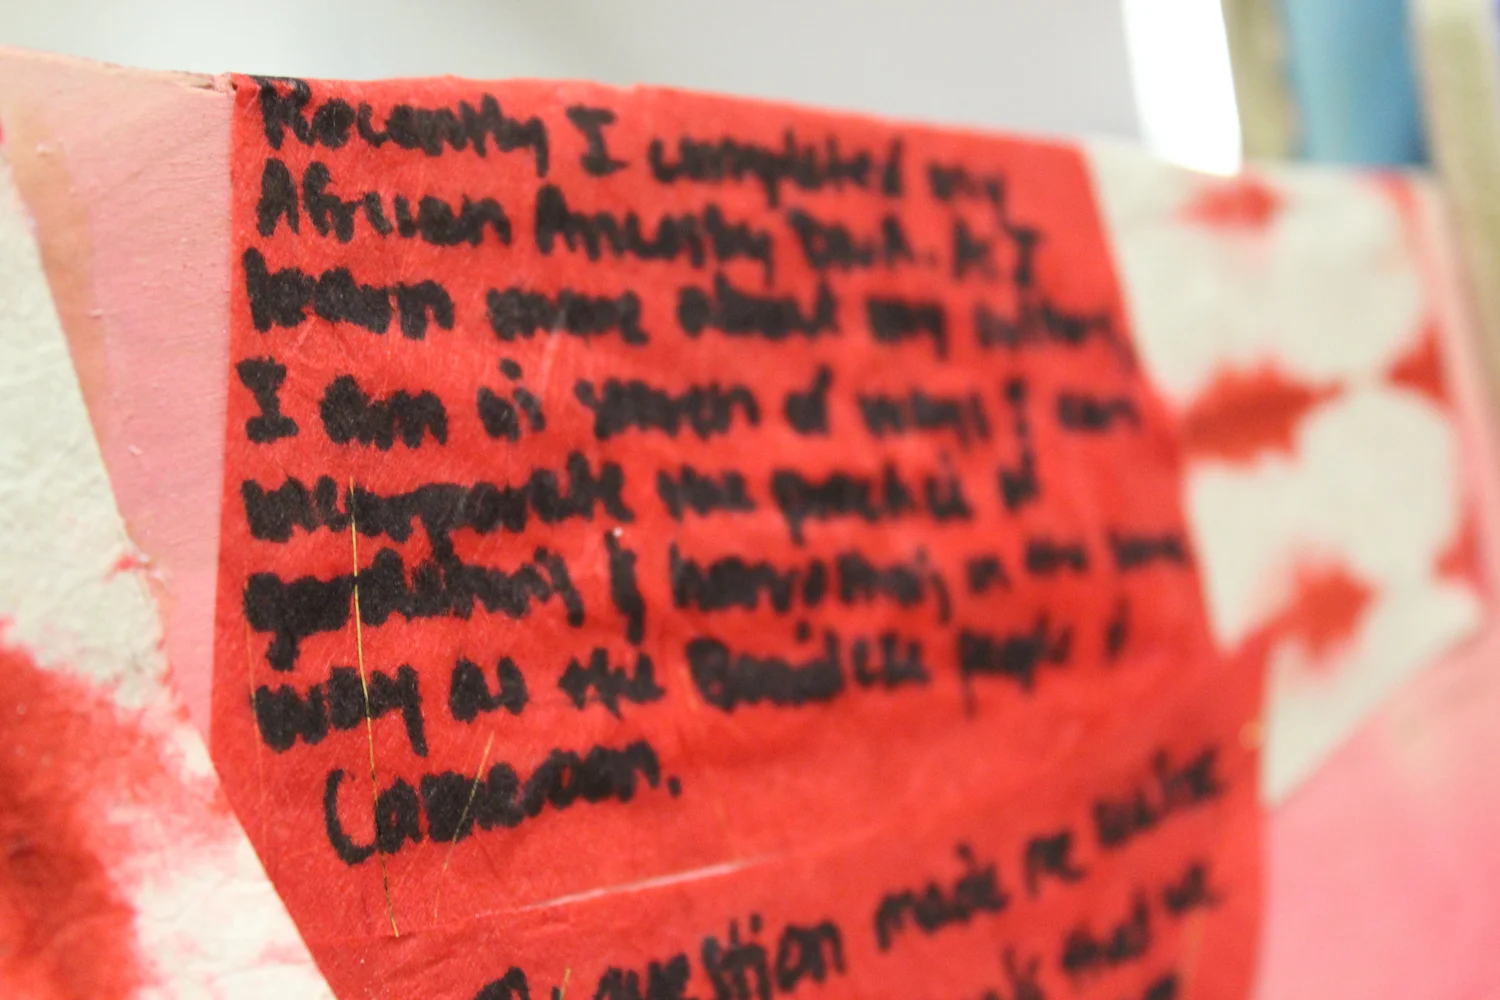 Recently I completed my
African Ancestry DNA. As I
learn more about my culture,
I am in search of ways I can
incorporate the practice of
quilting & harvesting in the same
way as the Bamileke people of
Cameroon.
question made me realize
that we